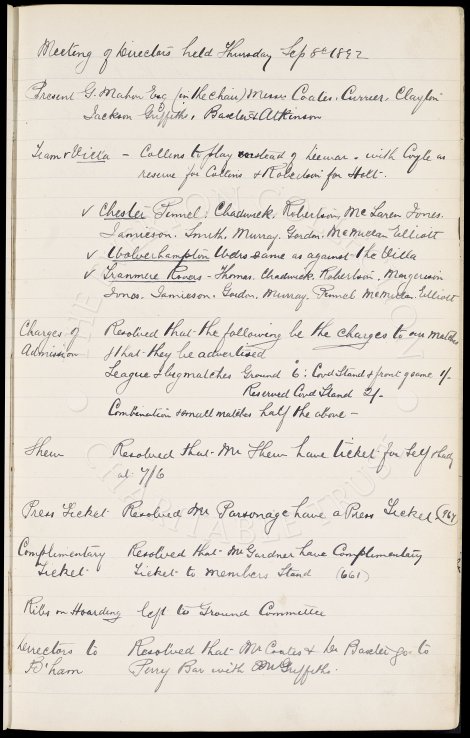 Meeting of Directors held Thursday Sep 8th 1892
Present G. Mahon Esq (in the chair) Messrs Coates, Currier, Clayton
Jackson Griffiths, Baxter & Atkinson
Team v Villa - Collins to play instead of with Coyle as
reserve for Collins & Robertson for Holt.
v Chester Pinnell, Chadwick, Robertson, McLaren Jones.
Jamieson. Smith, Murray, Gordon, McMillan Elliott
v Wolverhampton Wdrs same as against the Villa
v Tranmere Rovers - Thomas, Chadwick, Robertson, Margerison
Jones, Jamieson, Gordon, Murray, Pinnell McMillan, Elliott
Charges of Resolved that the following be the charges to our matches
Admission & that they be advertised
League & big matches Ground 6d: Covd Stand & front game 1/-
Reserved Covd Stand 2/-
Combination & small matches half the above -
Resolved that Mr have ticket for Self & lady
at 7/6
Press Ticket Resolved Mr Parsonage have a Press Ticket (964)
Complimentary Resolved that Mr Gardner have Complimentary
Ticket Ticket to Members Stand (661)
on Hoarding left to Ground Committee
Directors to Resolved that Mr Coates & Dr Baxter go to
B'ham Perry Bar with Mr Griffiths.
THE
CHARITABLE TRUST